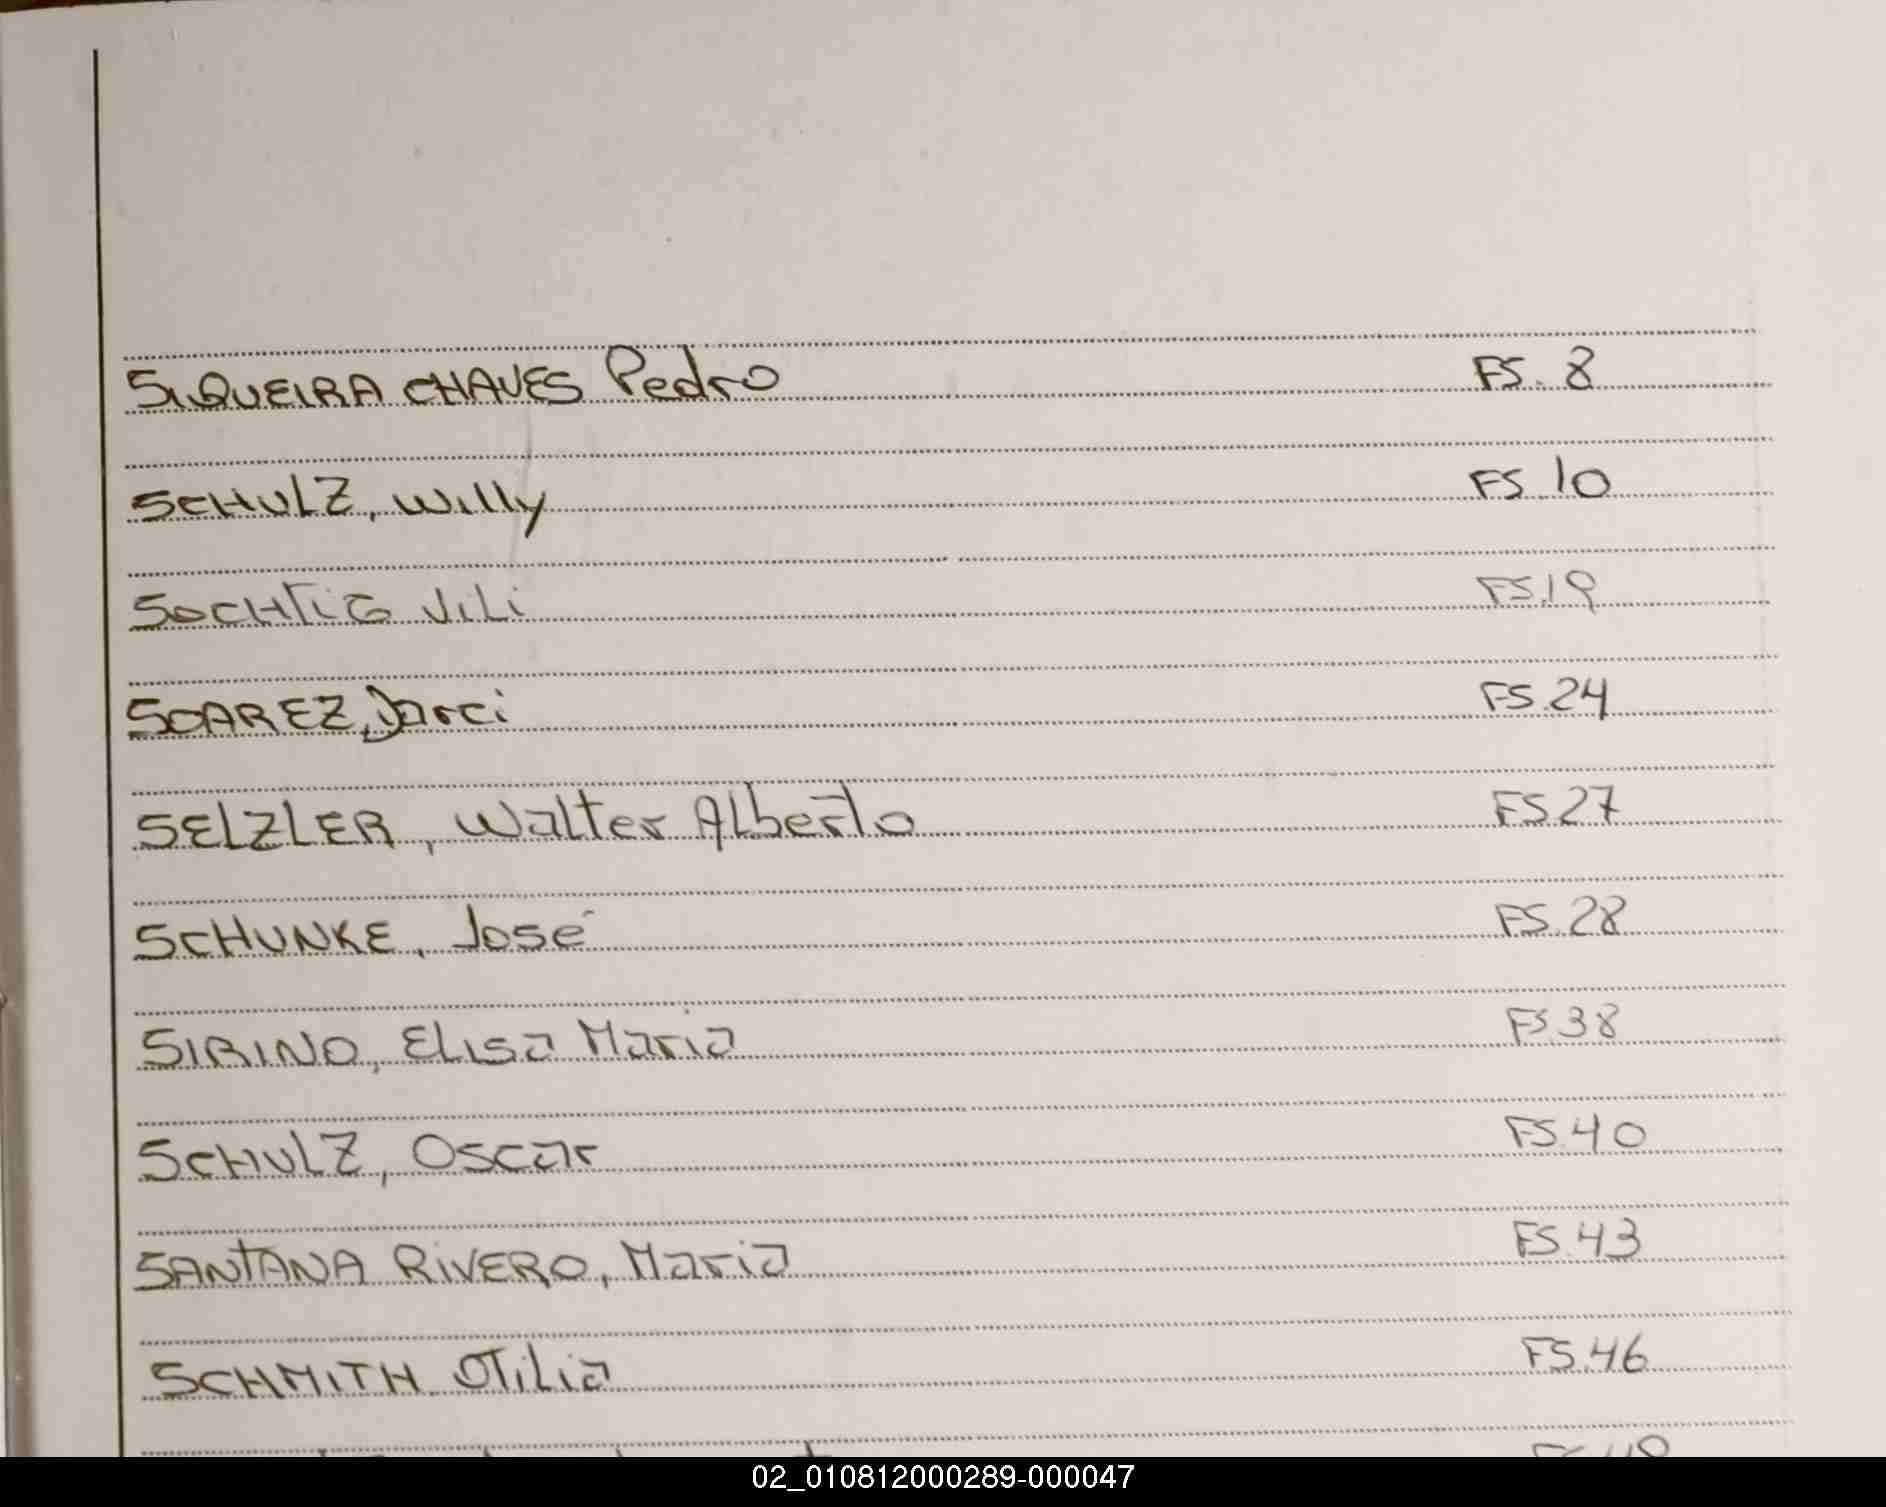 SIQUEIRA CHAVES Pedro FS. 8
SCHULZ, Willy FS 10
SOCHTIG VILI FS.19
SOAREZ, Darci FS.24
SELZLER, Walter Alberto FS 27
SCHUNKE, José FS.28
SIRINO, Elisa Maria FS.38
SCHULZ, Oscar FS.40
SANTANA RIVERO, Maria FS.43
SCHMITH OTilia FS.46
02_010812000289-000047